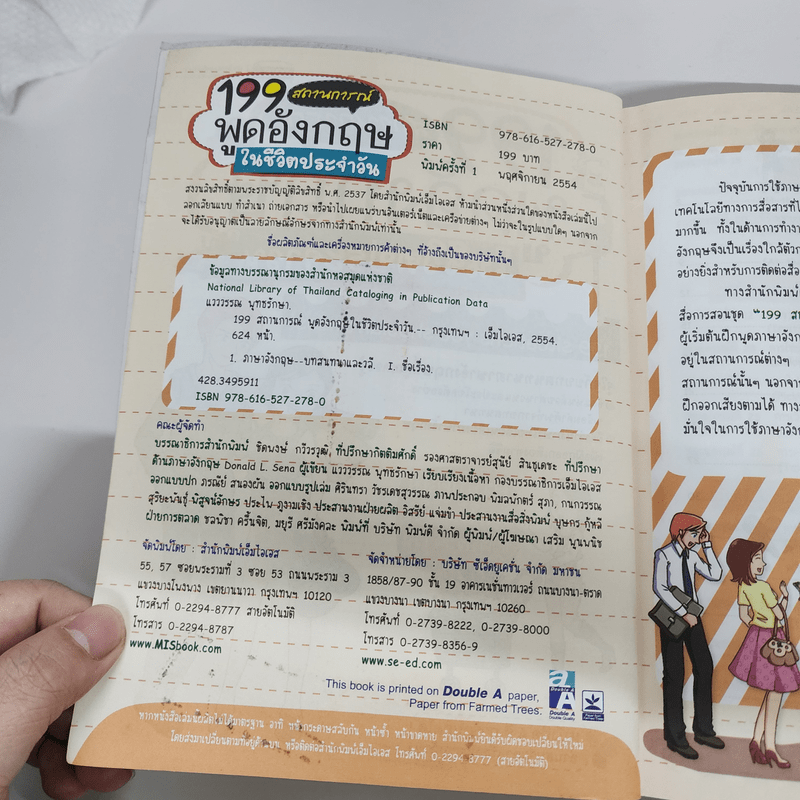 199 สถานการณ์
พูดอังกฤษ
ในชีวิตประจำวัน
ISBN 978-616-527-278-0
ราคา 199 บาท
พิมพ์ครั้งที่ 1 พฤศจิกายน 2554
สงวนลิขสิทธิ์ตามพระราชบัญญัติลิขสิทธิ์ พ.ศ. 2537 โดยสำนักพิมพ์เอ็มไอเอส ห้ามนำส่วนหนึ่งส่วนใดของหนังสือเล่มนี้ไป
ลอกเลียนแบบ ทำสำเนา ถ่ายเอกสาร หรือนำไปเผยแพร่บนอินเตอร์เน็ตและเครือข่ายต่างๆ ไม่ว่าจะในรูปแบบใดๆ นอกจาก
จะได้รับอนุญาตเป็นลายลักษณ์อักษรจากทางสำนักพิมพ์เท่านั้น
ชื่อผลิตภัณฑ์และเครื่องหมายการค้าต่างๆ ที่อ้างถึงเป็นของบริษัทนั้นๆ
ข้อมูลทางบรรณานุกรมของสำนักหอสมุดแห่งชาติ
National Library of Thailand Cataloging in Publication Data
แวววรรณ พุทธรักษา.
199 สถานการณ์ พูดอังกฤษในชีวิตประจำวัน.-- กรุงเทพฯ : เอ็มไอเอส, 2554.
624 หน้า.
1. ภาษาอังกฤษ--บทสนทนาและวลี. I. ชื่อเรื่อง.
428.3495911
ISBN 978-616-527-278-0
คณะผู้จัดทำ
บรรณาธิการสำนักพิมพ์ ชิดพงษ์ กวีวรวุฒิ ที่ปรึกษากิตติมศักดิ์ รองศาสตราจารย์สุนัย์ สินธุเดชะ ที่ปรึกษา
ด้านภาษาอังกฤษ Donald L. Sena ผู้เขียน แวววรรณ พุทธรักษา เรียบเรียงเนื้อหา กองบรรณาธิการเอ็มไอเอส
ออกแบบปก ภรณีย์ สนองผัน ออกแบบรูปเล่ม ศิรินทรา วัชรเดชสุวรรณ ภาพประกอบ พิมลพักตร์ สุภา, กนกวรรณ
สุริยะพันธุ์ พิสูจน์อักษร ประไพ ภูงามเชิง ประสานงานฝ่ายผลิต อิสรีย์ แจ่มขำ ประสานงานสื่อสิ่งพิมพ์ บุษกร กู้หลี
ฝ่ายการตลาด ชลพิชา ครื้นจิต, มยุรี ศรีมังคละ พิมพ์ที่ บริษัท พิมพ์ดี จำกัด ผู้พิมพ์/ผู้โฆษณา เสริม พูนพนิช
จัดพิมพ์โดย : สำนักพิมพ์เอ็มไอเอส
55, 57 ซอยพระรามที่ 3 ซอย 53 ถนนพระราม 3
แขวงบางโพงพาง เขตยานนาวา กรุงเทพฯ 10120
โทรศัพท์ 0-2294-8777 สายอัตโนมัติ
โทรสาร 0-2294-8787
www.MISbook.com
จัดจำหน่ายโดย : บริษัท ซีเอ็ดยูเคชั่น จำกัด มหาชน
1858/87-90 ชั้น 19 อาคารเนชั่นทาวเวอร์ ถนนบางนา-ตราด
แขวงบางนา เขตบางนา กรุงเทพฯ 10260
โทรศัพท์ 0-2739-8222, 0-2739-8000
โทรสาร 0-2739-8356-9
www.se-ed.com
This book is printed on Double A paper,
Paper from Farmed Trees.
Double A
Double Quality
หากหนังสือเล่มนี้ผลิตไม่ได้มาตรฐาน อาทิ หน้ากระดาษสลับกัน หน้าซ้ำ หน้าขาดหาย สำนักพิมพ์ยินดีรับผิดชอบเปลี่ยนให้ใหม่
โดยส่งมาเปลี่ยนตามที่อยู่ด้านบน หรือติดต่อสำนักพิมพ์เอ็มไอเอส โทรศัพท์ 0-2294-8777 (สายอัตโนมัติ)
ปัจจุบันการใช้ภา
เทคโนโลยีทางการสื่อสารที่
มากขึ้น ทั้งในด้านการทำงา
อังกฤษจึงเป็นเรื่องใกล้ตัว
อย่างยิ่งสำหรับการติดต่อสื่อ
ทางสำนักพิมพ์
สื่อการสอนชุด "199 ส
ผู้เริ่มต้นฝึกพูดภาษาอัง
อยู่ในสถานการณ์ต่างๆ
สถานการณ์นั้นๆ นอกจา
ฝึกออกเสียงตามได้ ทาง
มั่นใจในการใช้ภาษาอัง